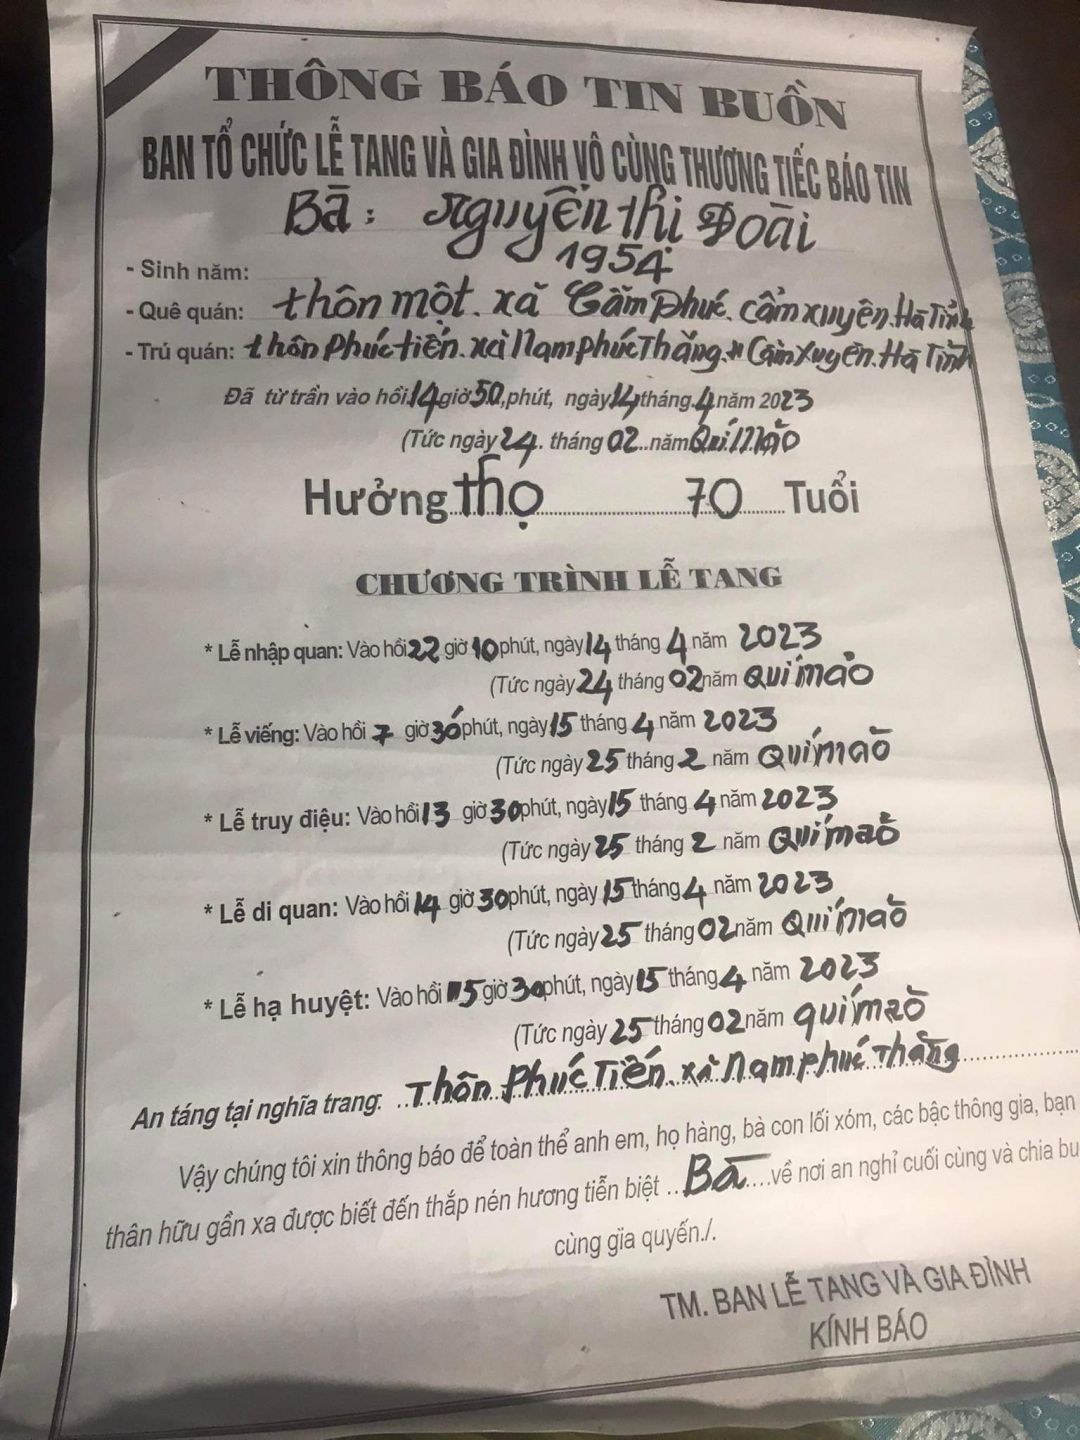 THÔNG BÁO TIN BUỒN
BAN TỔ CHỨC LỄ TANG VÀ GIA ĐÌNH VÔ CÙNG THƯƠNG TIẾC BÁO TIN
Bà: Nguyễn Thị Đoài
- Sinh năm: 1954
- Quê quán: thôn một. xã Cẩm Phúc. Cẩm Xuyên. Hà Tĩnh
- Trú quán: thôn Phúc Tiến. xã Nam Phúc Thăng. Cẩm Xuyên. Hà Tĩnh
Đã từ trần vào hồi 14 giờ 50, phút, ngày 14 tháng 4 năm 2023
(Tức ngày 24. tháng 02 năm Quí Mão
Hưởng thọ 70 Tuổi
CHƯƠNG TRÌNH LỄ TANG
* Lễ nhập quan: Vào hồi 22 giờ 10 phút, ngày 14 tháng 4 năm 2023
(Tức ngày 24 tháng 02 năm Quí mão
* Lễ viếng: Vào hồi 7 giờ 30 phút, ngày 15 tháng 4 năm 2023
(Tức ngày 25 tháng 2 năm Quí mão
* Lễ truy điệu: Vào hồi 13 giờ 30 phút, ngày 15 tháng 4 năm 2023
(Tức ngày 25 tháng 2 năm Quí mão
* Lễ di quan: Vào hồi 14 giờ 30 phút, ngày 15 tháng 4 năm 2023
(Tức ngày 25 tháng 02 năm Quí mão
* Lễ hạ huyệt: Vào hồi 15 giờ 30 phút, ngày 15 tháng 4 năm 2023
(Tức ngày 25 tháng 02 năm quí mão
An táng tại nghĩa trang: Thôn Phúc Tiến. xã Nam phúc Thăng
Vậy chúng tôi xin thông báo để toàn thể anh em, họ hàng, bà con lối xóm, các bậc thông gia, bạn
thân hữu gần xa được biết đến thắp nén hương tiễn biệt Bà về nơi an nghỉ cuối cùng và chia bu
cùng gia quyến./.
TM. BAN LỄ TANG VÀ GIA ĐÌNH
KÍNH BÁO